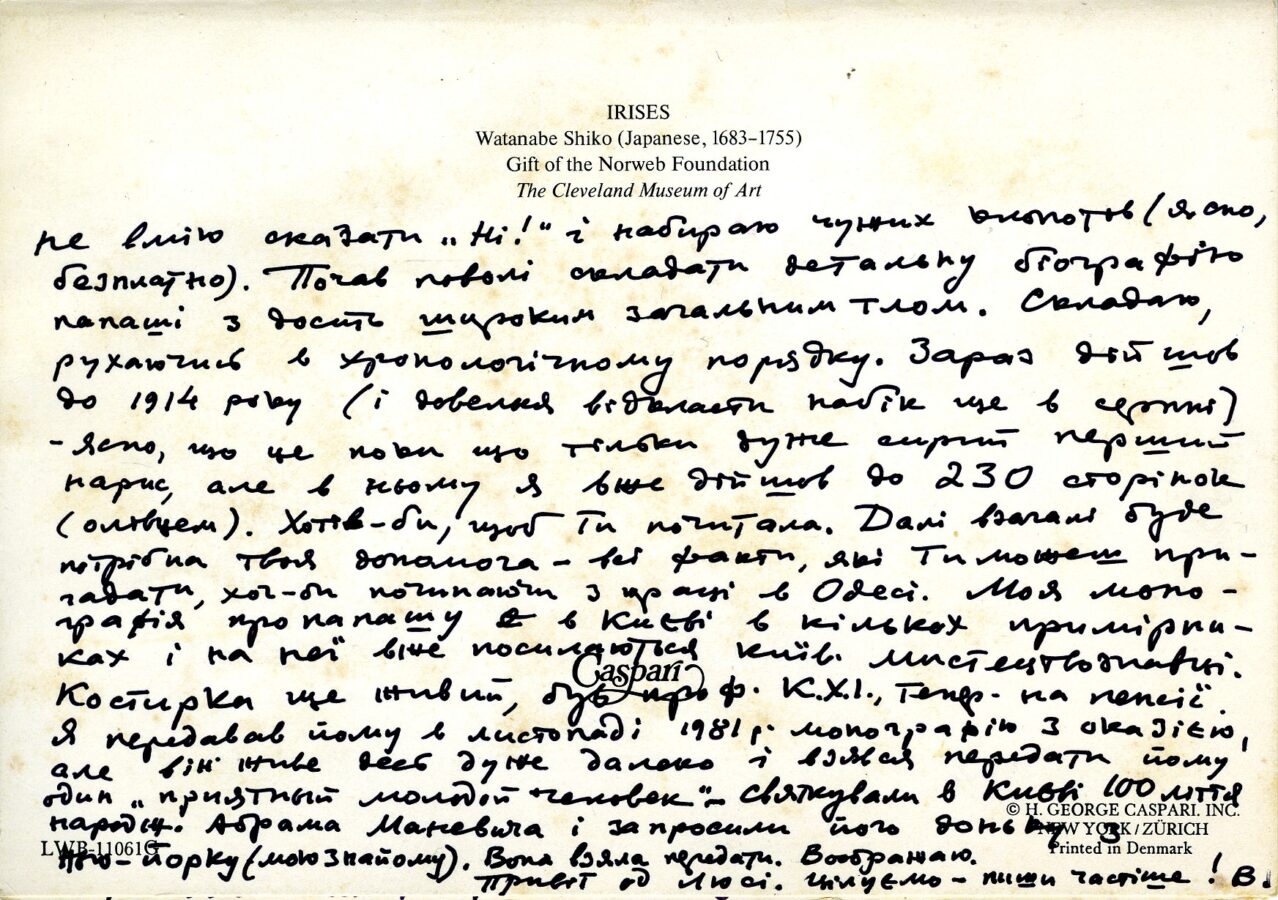 IRISES
Watanabe Shiko (Japanese, 1683–1755)
Gift of the Norweb Foundation
The Cleveland Museum of Art
не вмію сказати „Ні!“ і набираю чужих клопотів (ясно,
безплатно). Почав поволі складати детальну біографію
папаші з досить широким загальним тлом. Складаю,
рухаючись в хронологічному порядку. Зараз дійшов
до 1914 року (і довелося відкласти набік ще в серпні)
- ясно, що це поки що тільки дуже сирий перший
нарис, але в ньому я вже дійшов до 230 сторінок
(олівцем). Хотів-би, щоб Ти почитала. Далі взагалі буде
потрібна твоя допомога – всі факти, які Ти можеш при-
гадати, хоч-би починаючи з праці в Одесі. Моя моно-
графія про папашу є в Києві в кількох примірни-
ках і на неї вже посилаються київ. мистецтвознавці.
Caspari
Костирка ще живий, був проф. К.Х.І., тепер- на пенсії.
Я передавав йому в листопаді 1981 р. монографію з оказією,
але він живе десь дуже далеко і взявся передати йому
один „приятный молодой человек“ – святкували в Києві 100 ліття
народж. Абрама Маневича і запросили його доньку з
Нью-Йорку (мою знайому). Вона взяла передати. Воображаю.
Привіт од Люсі. Цілуємо – пиши частіше! В.
© H. GEORGE CASPARI. INC.
NEW YORK / ZÜRICH
Printed in Denmark
LWB-11061G